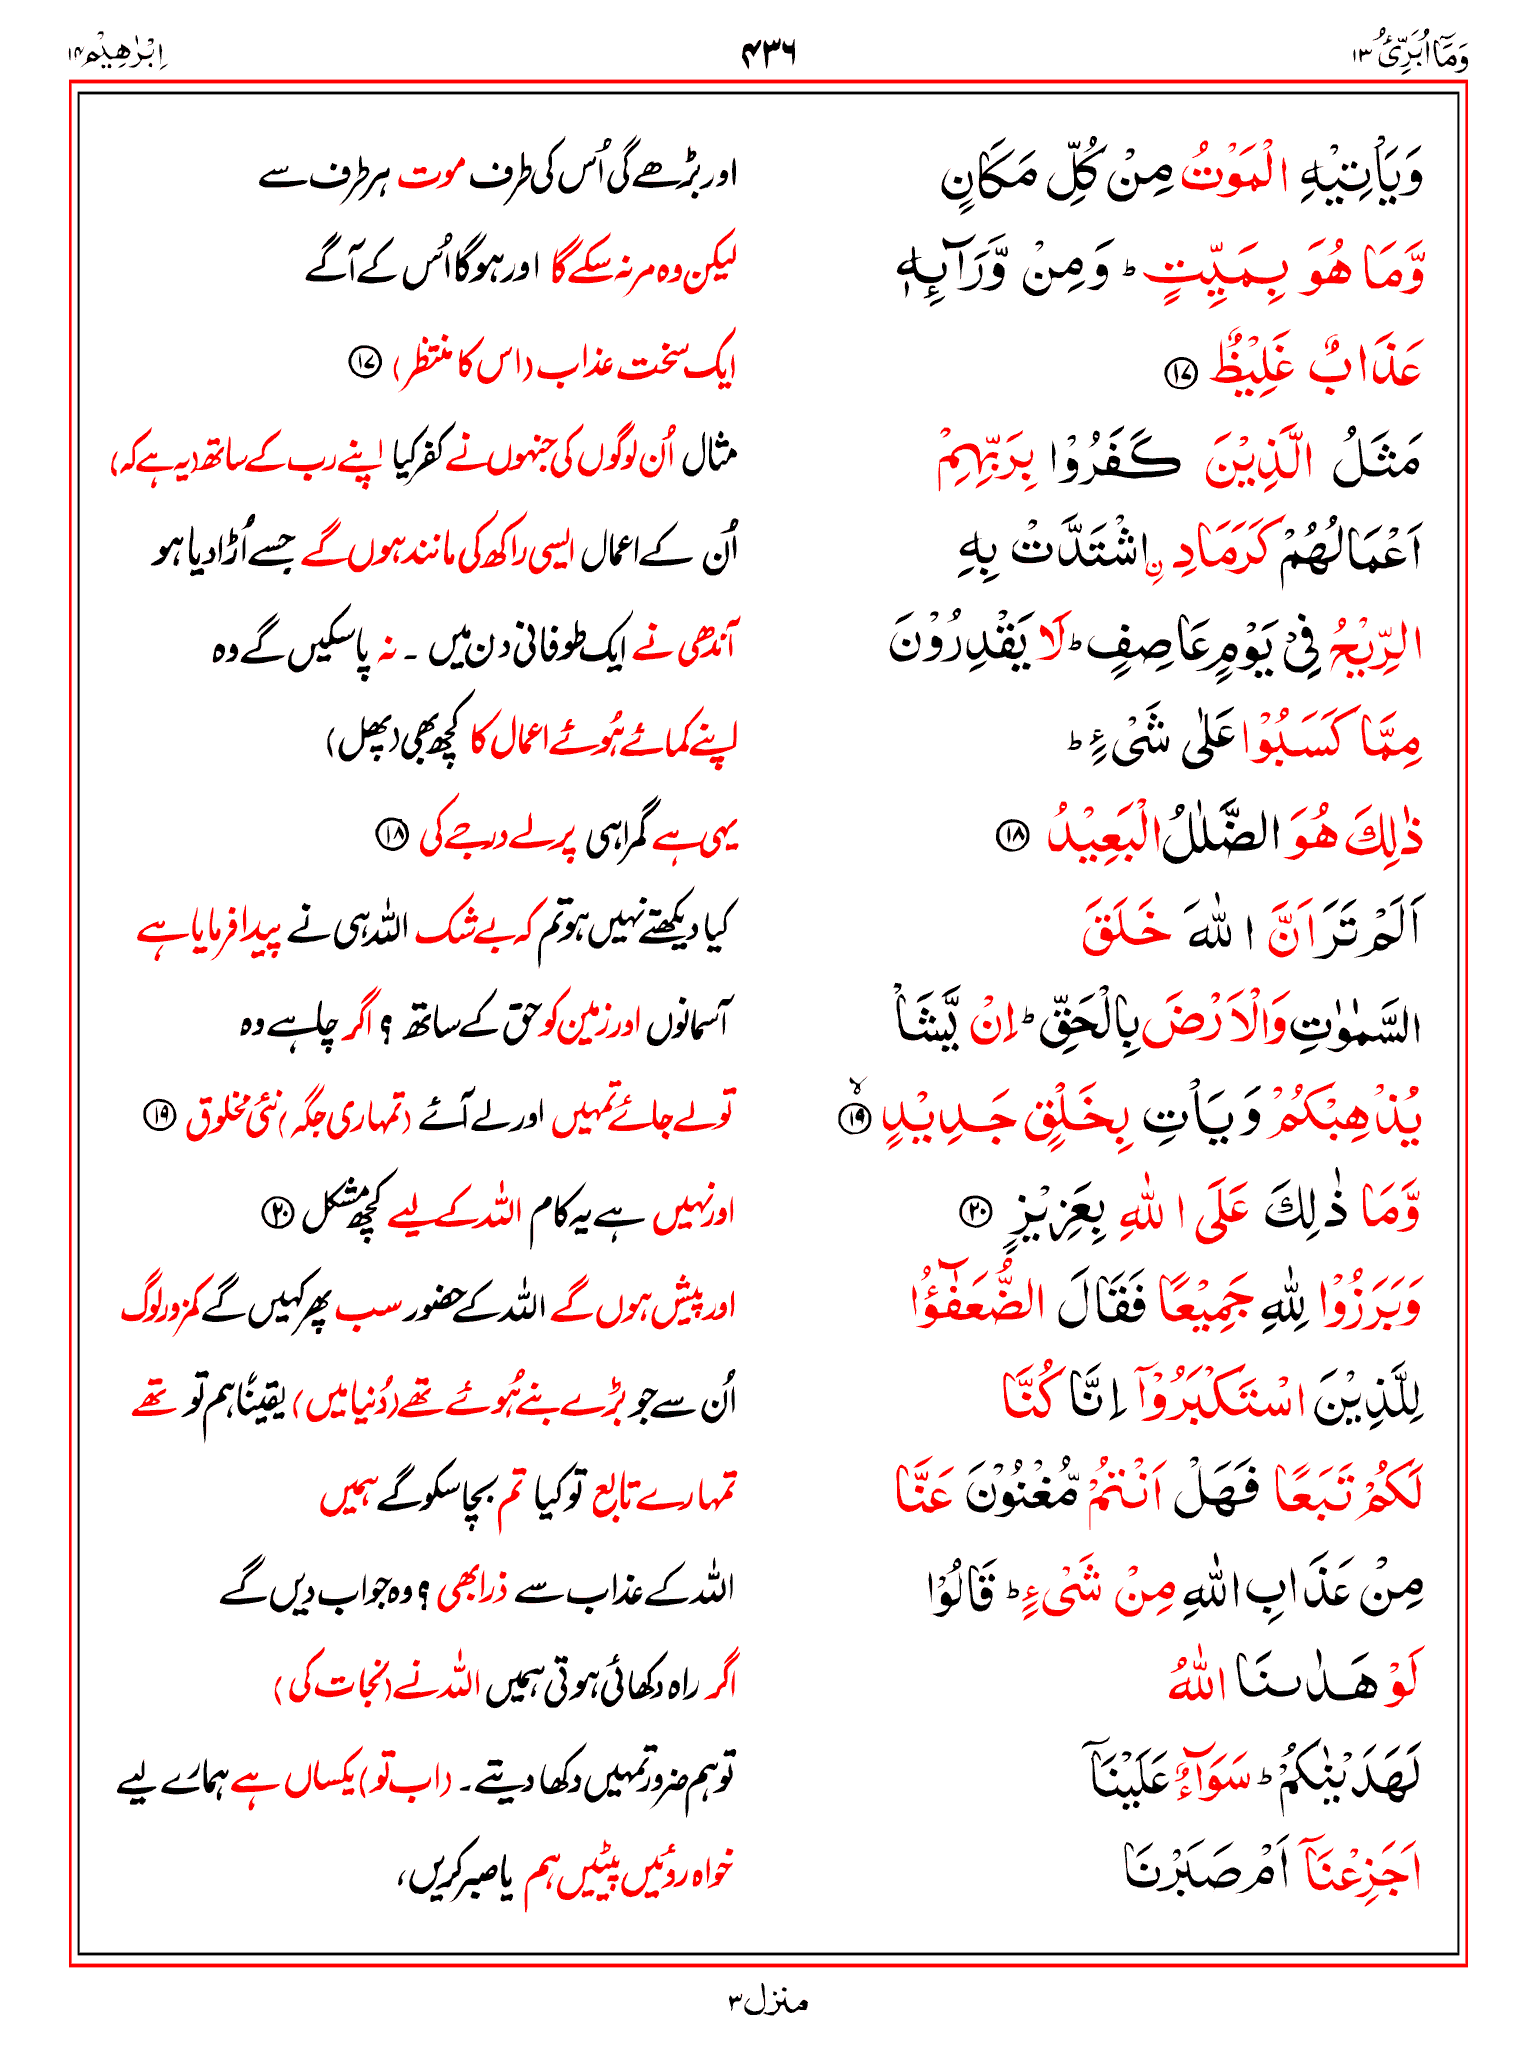 وَمَآ اُبَرِّئُ ۱۳ ۴۳۶ اِبْرٰهِيْم ۱۴
وَيَاْتِيْهِ الْمَوْتُ مِنْ كُلِّ مَكَانٍ اور بڑھے گی اُس کی طرف موت ہر طرف سے
وَّمَا هُوَ بِمَيِّتٍ ؕ وَمِنْ وَّرَآىِٕهٖ لیکن وہ مر نہ سکے گا اور ہو گا اُس کے آگے
عَذَابٌ غَلِيْظٌ ۝۱۷ ایک سخت عذاب (اس کا منتظر) ۝۱۷
مَثَلُ الَّذِيْنَ كَفَرُوْا بِرَبِّهِمْ مثال اُن لوگوں کی جنہوں نے کفر کیا اپنے رب کے ساتھ (یہ ہے کہ)
اَعْمَالُهُمْ كَرَمَادِ ۨ اشْتَدَّتْ بِهِ اُن کے اعمال ایسی راکھ کی مانند ہوں گے جسے اُڑا دیا ہو
الرِّيْحُ فِيْ يَوْمٍ عَاصِفٍ ؕ لَا يَقْدِرُوْنَ آندھی نے ایک طوفانی دن میں ۔ نہ پا سکیں گے وہ
مِمَّا كَسَبُوْا عَلٰى شَىْءٍ ؕ اپنے کمائے ہُوئے اعمال کا کچھ بھی (پھل)
ذٰلِكَ هُوَ الضَّلٰلُ الْبَعِيْدُ ۝۱۸ یہی ہے گمراہی پرلے درجے کی ۝۱۸
اَلَمْ تَرَ اَنَّ اللهَ خَلَقَ کیا دیکھتے نہیں ہو تم کہ بے شک اللہ ہی نے پیدا فرمایا ہے
السَّمٰوٰتِ وَالْاَرْضَ بِالْحَقِّ ؕ اِنْ يَّشَاْ آسمانوں اور زمین کو حق کے ساتھ ؟ اگر چاہے وہ
يُذْهِبْكُمْ وَيَاْتِ بِخَلْقٍ جَدِيْدٍ ۝۱۹ ۙ تو لے جائے تمہیں اور لے آئے (تمہاری جگہ) نئی مخلوق ۝۱۹
وَّمَا ذٰلِكَ عَلَى اللهِ بِعَزِيْزٍ ۝۲۰ اور نہیں ہے یہ کام اللہ کے لیے کچھ مشکل ۝۲۰
وَبَرَزُوْا لِلّٰهِ جَمِيْعًا فَقَالَ الضُّعَفٰٓؤُا اور پیش ہوں گے اللہ کے حضور سب پھر کہیں گے کمزور لوگ
لِلَّذِيْنَ اسْتَكْبَرُوْٓا اِنَّا كُنَّا اُن سے جو بڑے بنے ہُوئے تھے (دُنیا میں) یقینًا ہم تو تھے
لَكُمْ تَبَعًا فَهَلْ اَنْتُمْ مُّغْنُوْنَ عَنَّا تمہارے تابع تو کیا تم بچا سکو گے ہمیں
مِنْ عَذَابِ اللهِ مِنْ شَىْءٍ ؕ قَالُوْا اللہ کے عذاب سے ذرا بھی ؟ وہ جواب دیں گے
لَوْ هَدٰىنَا اللهُ اگر راہ دکھائی ہوتی ہمیں اللہ نے (نجات کی)
لَهَدَيْنٰكُمْ ؕ سَوَآءٌ عَلَيْنَآ تو ہم ضرور تمہیں دکھا دیتے ۔ (اب تو) یکساں ہے ہمارے لیے
اَجَزِعْنَآ اَمْ صَبَرْنَا خواہ روئیں پیٹیں ہم یا صبر کریں،
منزل ۳